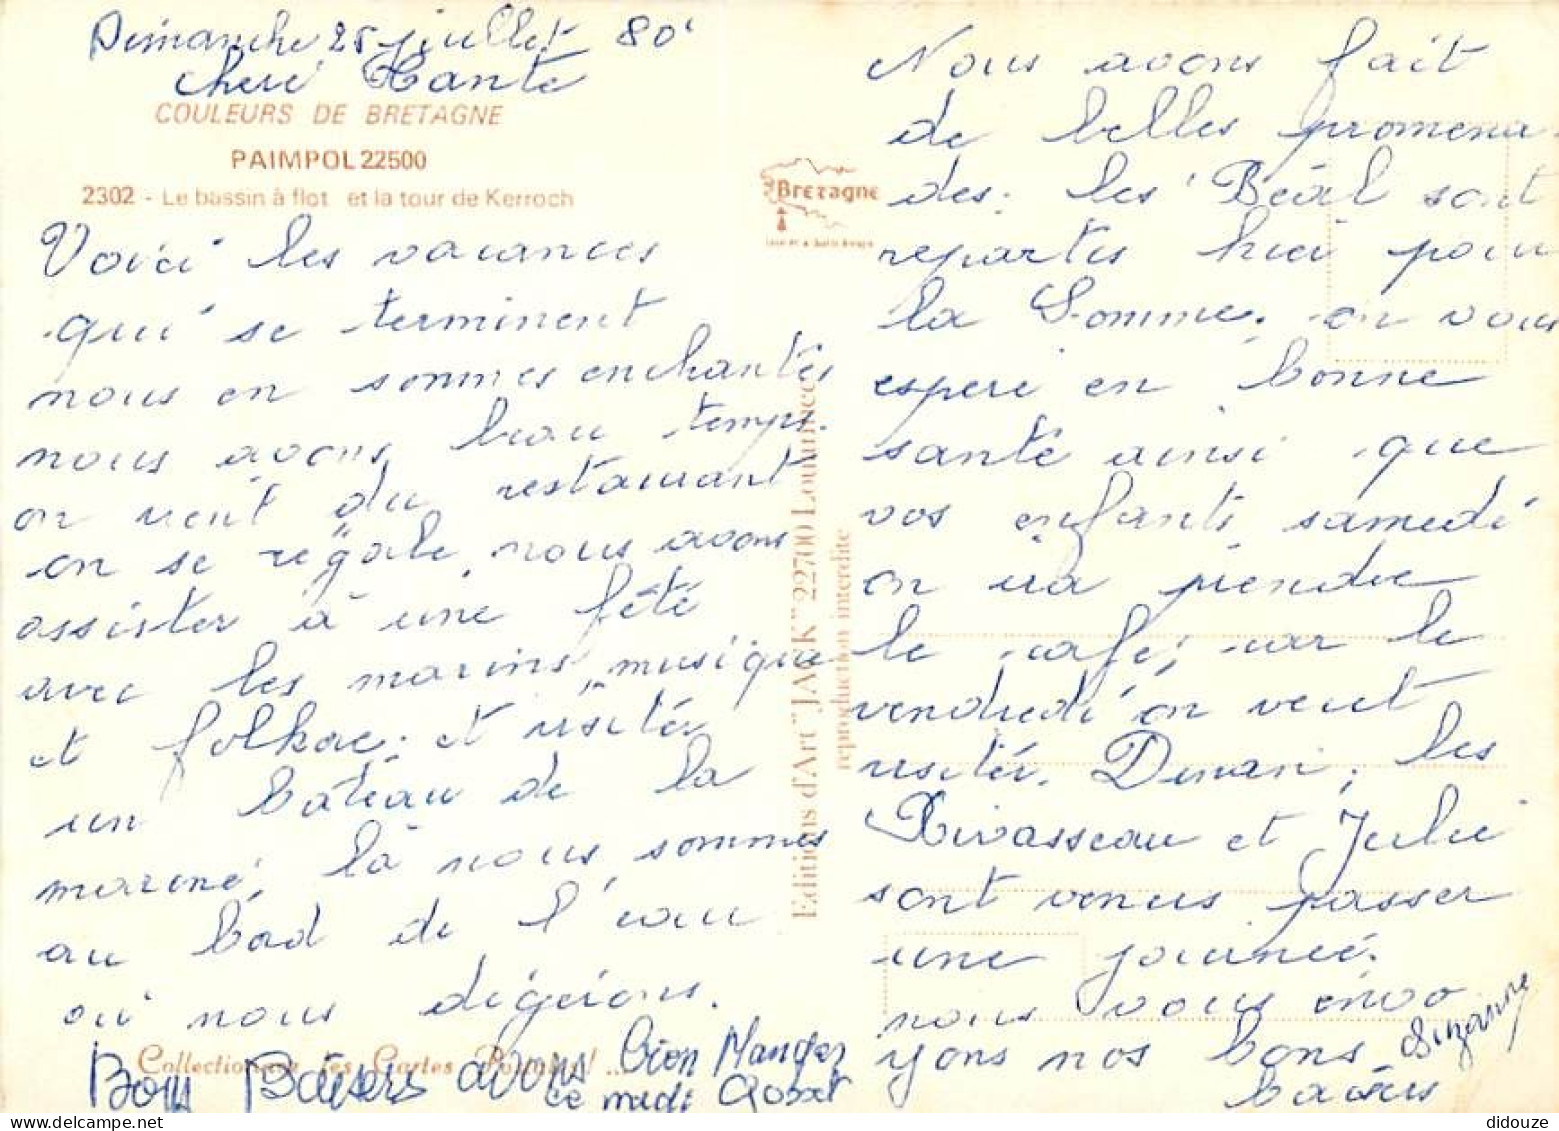 Dimanche 25 juillet 80'
cheré Tante
COULEURS DE BRETAGNE
PAIMPOL 22500
2302 - Le bassin à flot et la tour de Kerroch
Voici les vacances
qui se terminent
nous en sommes enchantés
nous avons beau temps.
on vient du restaurant
on se régale, nous avons
assister à une fêté
avec les marins, musique
et folkore, et visiter
un bâteau de la
mariné, là nous sommes
au bord de l'eau
où nous digérons.
Bons Baisers avons bien Manger
ce midi
Collectionnez les Cartes Postales! ...
Editions d'Art "JACK" 22700 Louannec
reproduction interdite
Bretagne
Nous avons fait
de belles promena
des. les Béal sont
repartis hier pour
la Somme, on vous
espere en bonne
santé ainsi que
vos enfants, samedi
on ira prendre
le café, car le
vendredi on veut
visiter Dinan, les
Rivasseau et Julie
sont venus passer
une journeé.
nous vous envo
yons nos bons
baisers
Suzanne
didouze